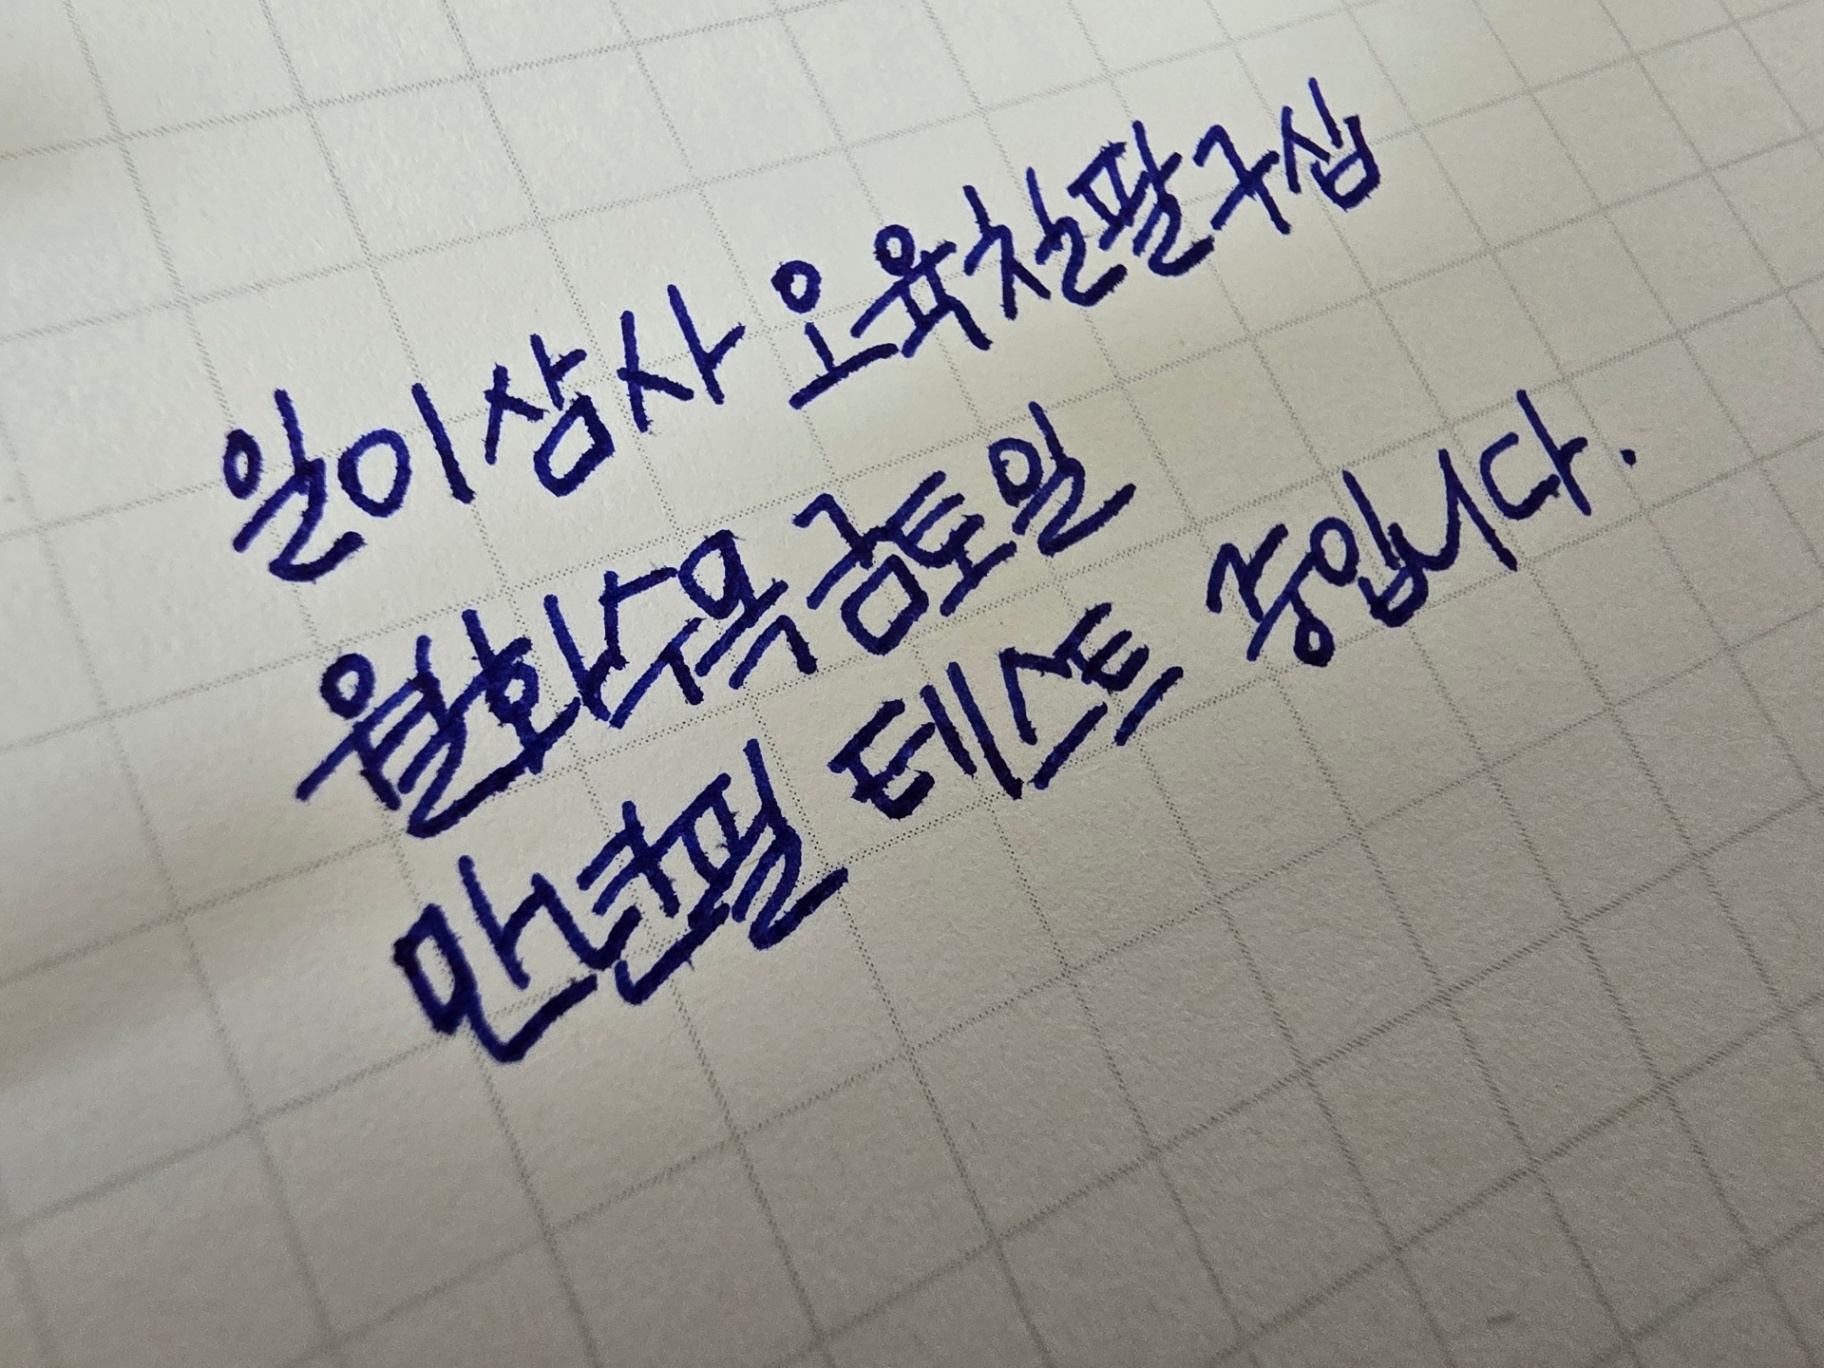 일이삼사 오육칠팔구십
월화수목금토일
만년필 테스트 중입니다.